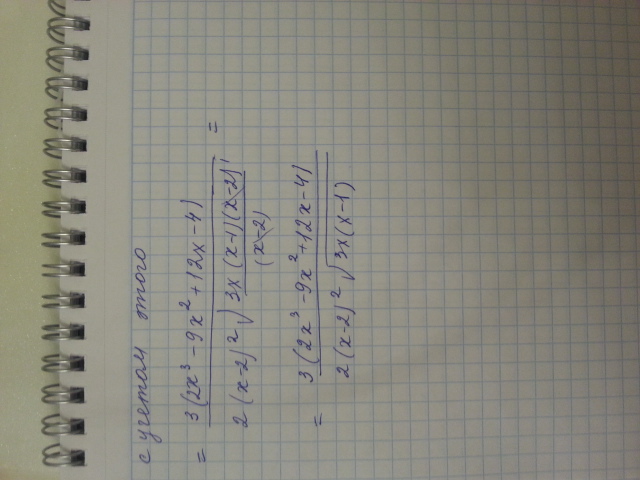 с учетом этого
= 3(2x³-9x²+12x-4) / 2(x-2)² √(3x(x-1)(x-2) / (x-2)) =
= 3(2x³-9x²+12x-4) / 2(x-2)² √(3x(x-1))